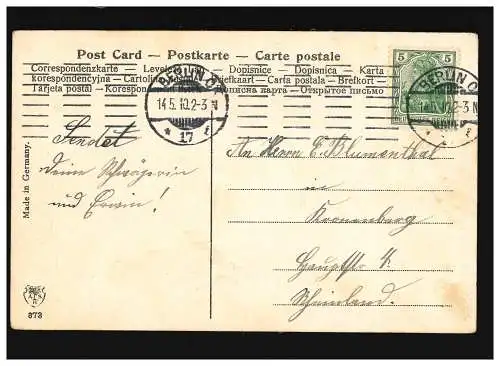 Post Card – Postkarte – Carte postale
Correspondenzkarte — Dopisnice — Dopisnica — Karta
korespondencyjna — Briefkaart — Carta postala — Brefkort
Tarjeta postal — Открытое письмо
BERLIN
14.5.10.2-3 N
17
5 5
BERLIN C
2-3 N
Sendet
Deine Schwägerin
und Erwin!
An Herrn E. Blumenthal
in
Kronenberg
Hauptstr.
Rheinland.
Made in Germany.
373